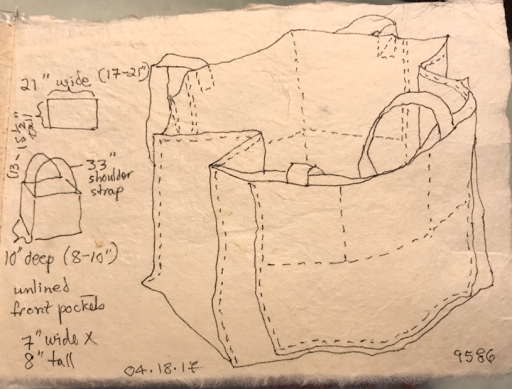 21" wide (17-21")
(13-15½" tall)
33"
shoulder
strap
10" deep (8-10")
unlined
front pockets
7" wide x
8" tall
04.18.17
9586